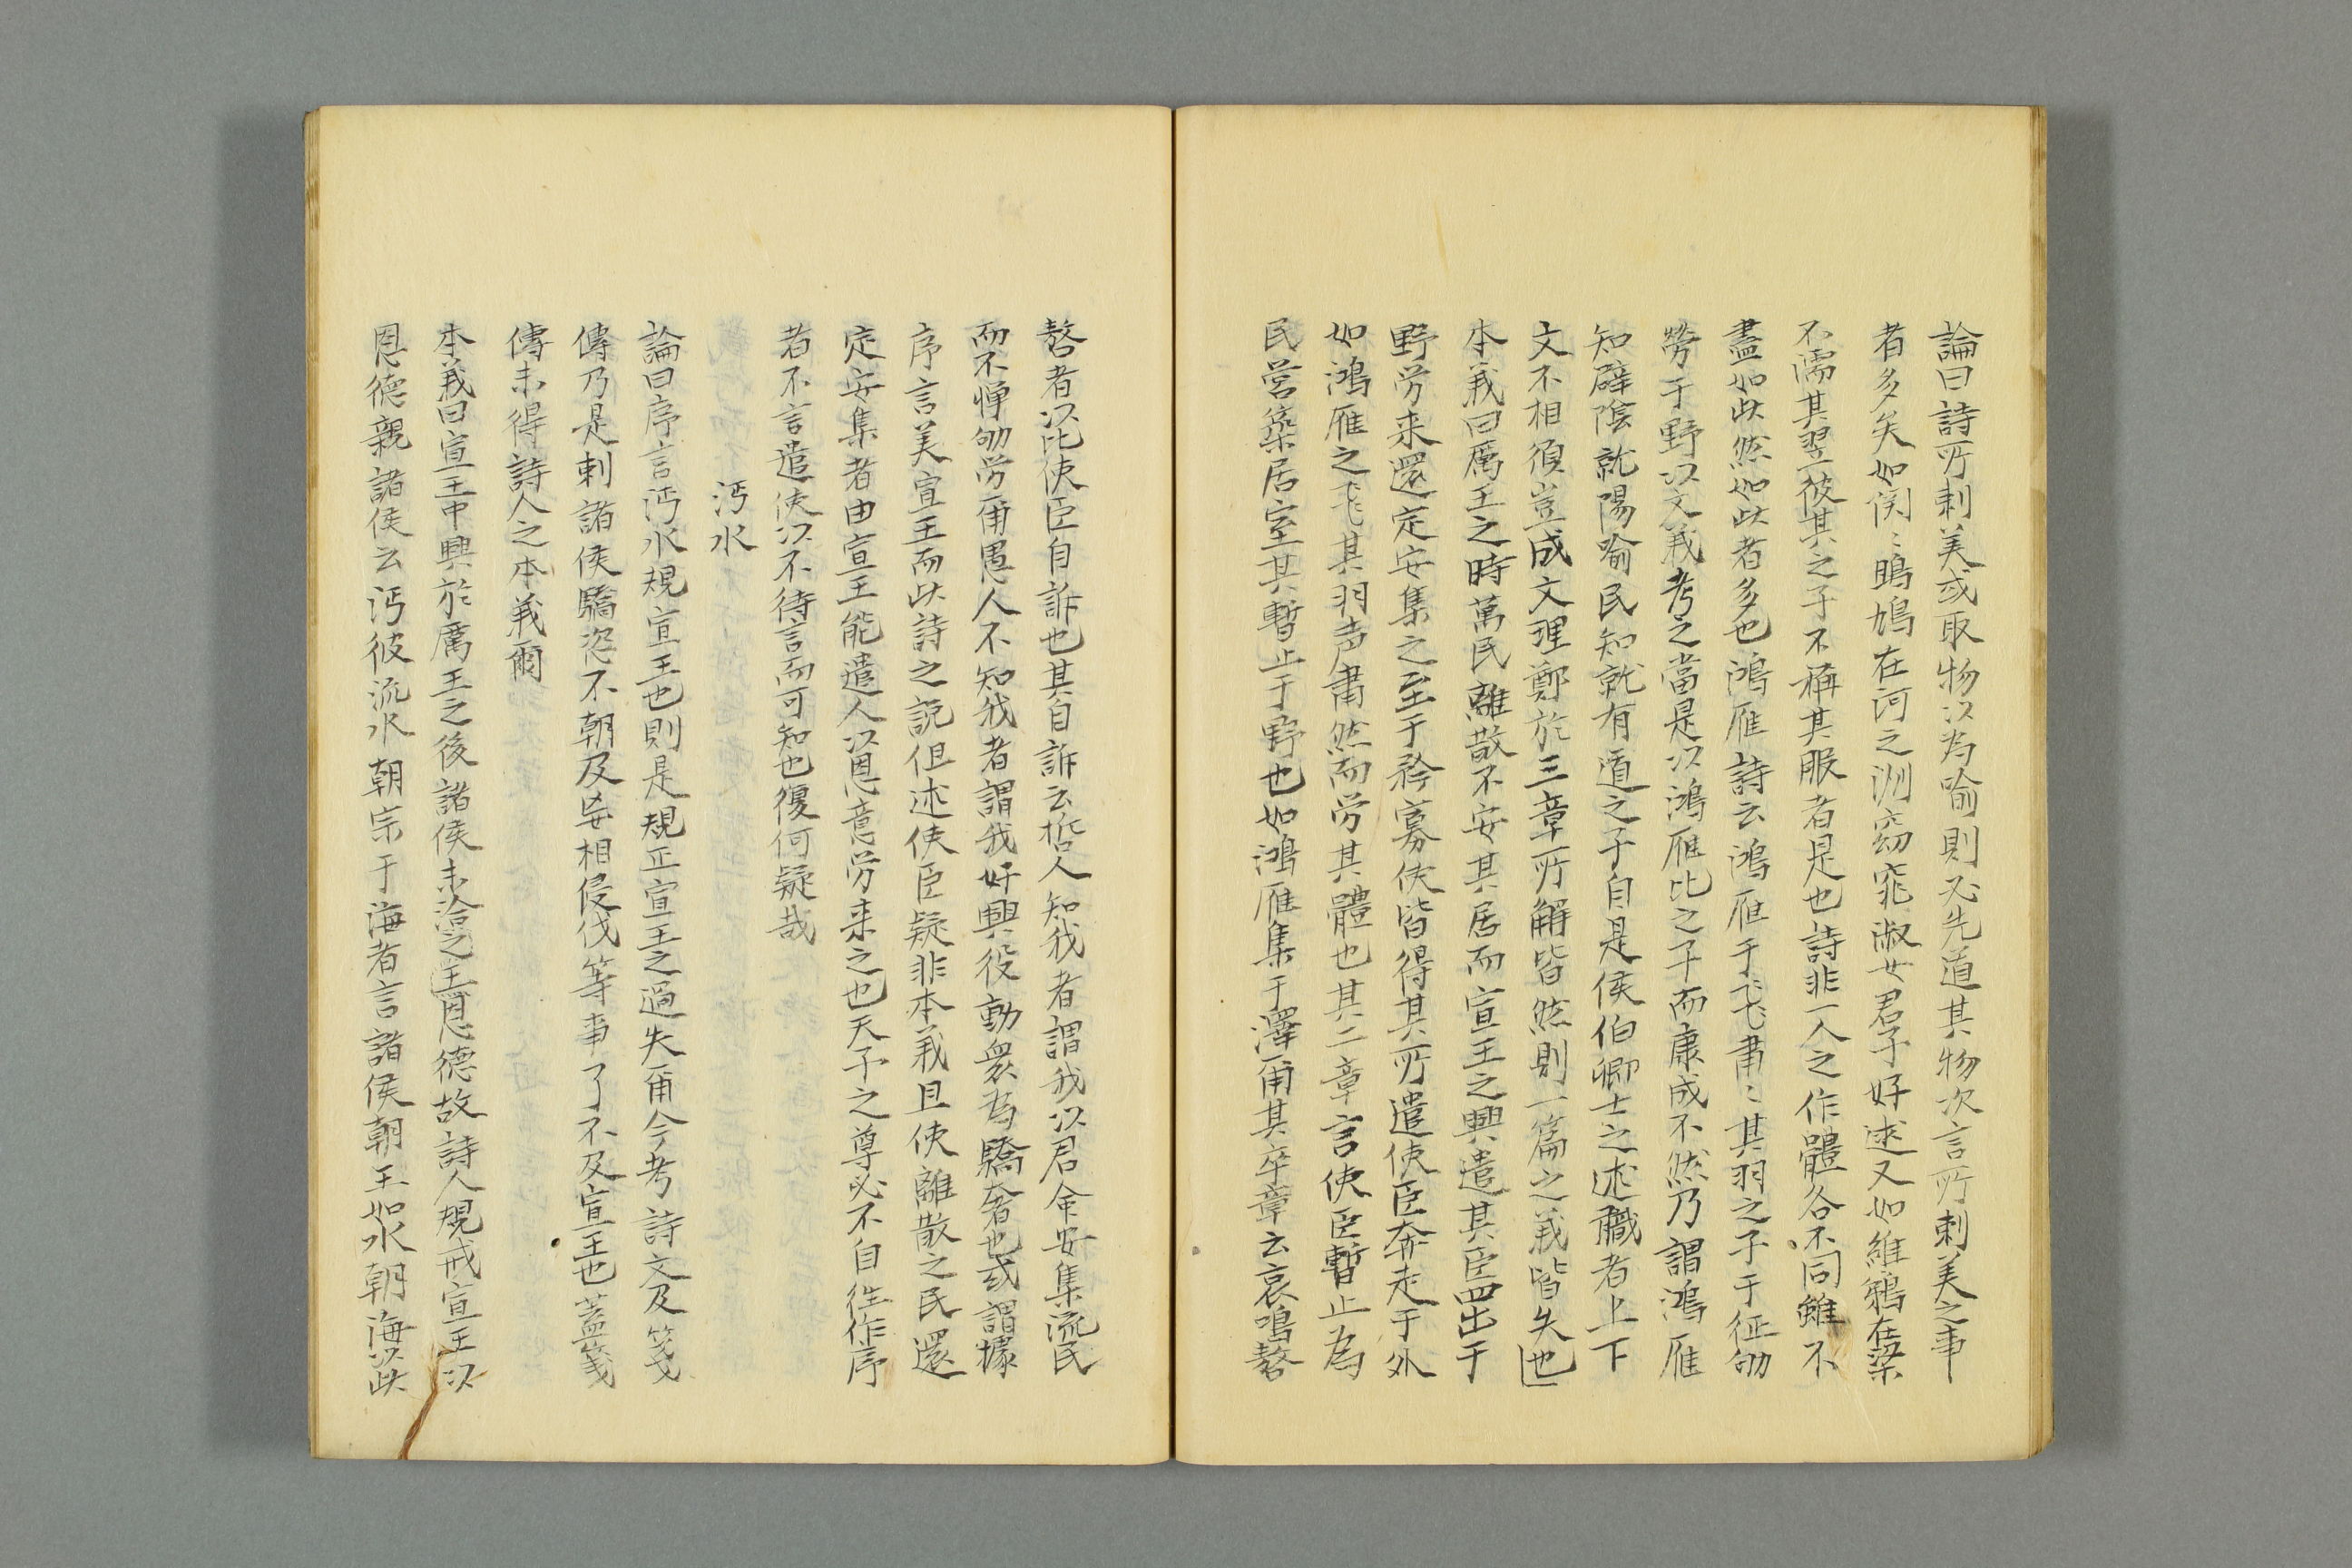 論曰詩所刺美或取物以為喻則必先道其物次言所刺美之事
者多矣如関〻鴡鳩在河之洲窈窕淑女君子好逑又如維鵜在梁
不濡其翌彼其之子不稱其服者是也詩非一人之作體各不同雖不
盡如此然如此者多也鴻雁詩云鴻雁于飛肅〻其羽之子于征劬
勞于野以文義考之當是以鴻雁比之子而康成不然乃謂鴻雁
知辟陰就陽喻民知就有道之子自是侯伯卿士之述職者上下
文不相須豈成文理鄭於三章所解皆然則一篇之義皆失也
本義曰厲王之時萬民離散不安其居而宣王之興遣其臣四出于
野労来還定安集之至于矜寡使皆得其所遣使臣奔走于外
如鴻雁之飛其羽声肅然而労其體也其二章言使臣暫止為
民営築居室其暫止于野也如鴻雁集于澤甭其卒章云哀鳴嗸
嗸者以比使臣自訴也其自訴云哲人知我者謂我以君命安集流民
而不憚劬労甭愚人不知我者謂我好興役動衆為驕奢也或謂據
序言美宣王而此詩之説但述使臣疑非本義且使離散之民還
定安集者由宣王能遣人以恩意労来之也天子之尊必不自往作序
者不言遣使以不待言而可知也復何疑哉
沔水
論曰序言沔水規宣王也則是規正宣王之過失甭今考詩文及箋
傳乃是刺諸侯驕恣不朝及妄相侵伐等事了不及宣王也蓋箋
傳未得詩人之本義爾
本義曰宣王中興於厲王之後諸侯未洽之王恩德故詩人規戒宣王以
恩德親諸侯云沔彼流水朝宗于海者言諸侯朝王如水朝海以此